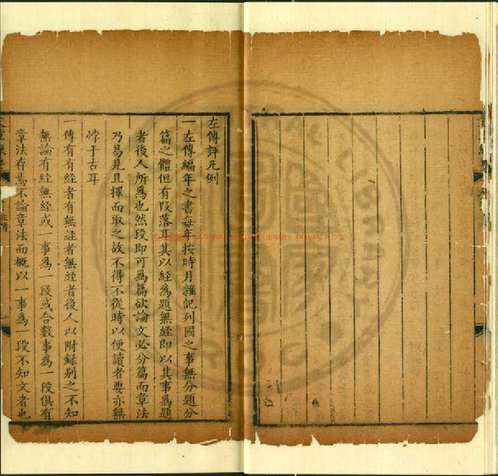 左傳評凡例
一左傳編年之書每年按時月雜記列國之事無分題分
篇之體但有段落耳其以經為題無經即以其事為題
者後人所為也然段即可為篇欲論文必分篇而章法
乃易見且擇而取之故不得不從時以便讀者要亦無
悖于古耳
一傳有有經者有無經者無經者後人以附錄別之不知
無論有經無經或一事為一段或合數事為一段俱有
章法存焉不論章法而概以一事為一段不知文者也